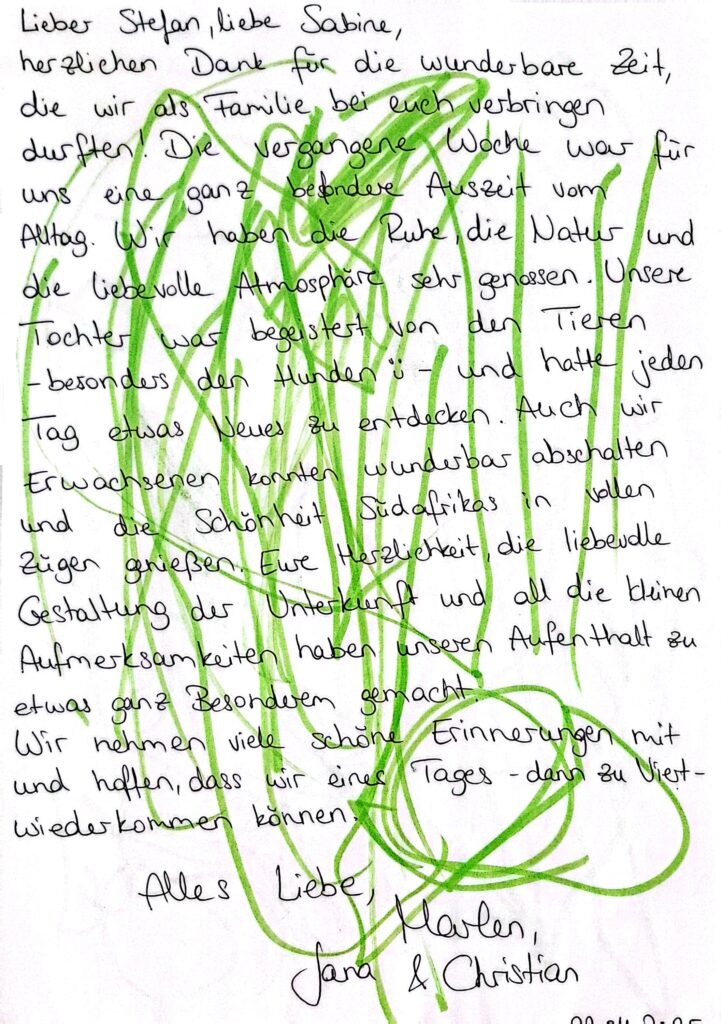 Lieber Stefan, liebe Sabine,
herzlichen Dank für die wunderbare Zeit,
die wir als Familie bei euch verbringen
durften! Die vergangene Woche war für
uns eine ganz besondere Auszeit vom
Alltag. Wir haben die Ruhe, die Natur und
die liebevolle Atmosphäre sehr genossen. Unsere
Tochter war begeistert von den Tieren
- besonders den Hunden ü - und hatte jeden
Tag etwas Neues zu entdecken. Auch wir
Erwachsenen konnten wunderbar abschalten
und die Schönheit Südafrikas in vollen
Zügen genießen. Eure Herzlichkeit, die liebevolle
Gestaltung der Unterkunft und all die kleinen
Aufmerksamkeiten haben unseren Aufenthalt zu
etwas ganz Besonderem gemacht.
Wir nehmen viele schöne Erinnerungen mit
und hoffen, dass wir eines Tages - dann zu Viert -
wiederkommen können.
Alles Liebe,
Marlen,
Jana & Christian